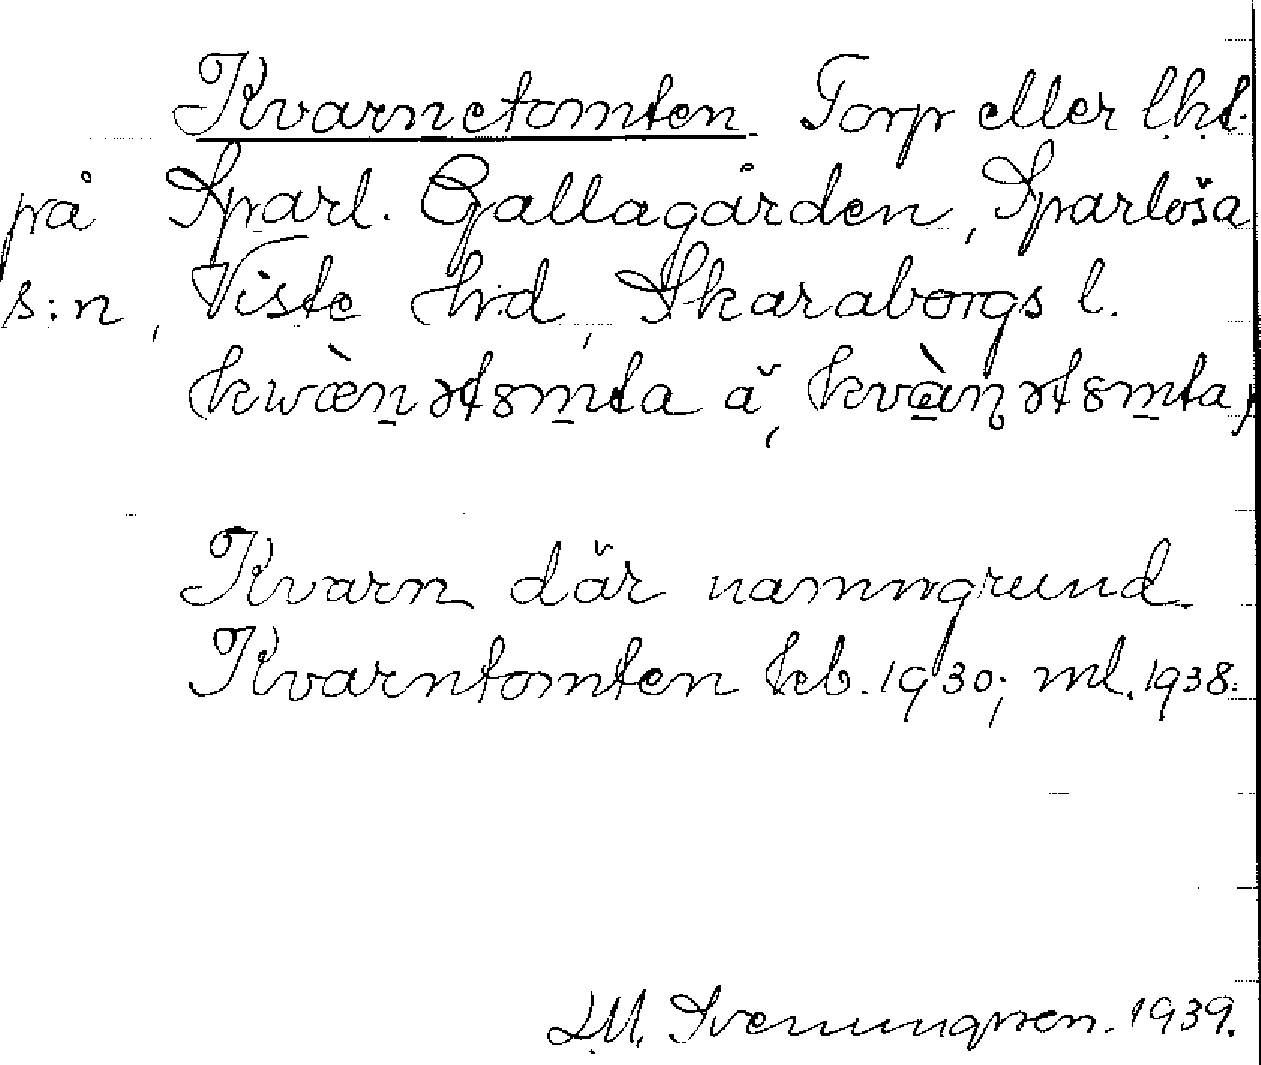 Kvarnetomten Torp eller l.h.t.
på Sparl. Gallagården, Sparlösa
s:n, Viste h:d, Skaraborgs l.
kwæ̀nətsmta ä, kvànətsmta,
Kvarn där namngrund
Kvarntomten kb. 1930; ml. 1938.
Svenungsson. 1939.